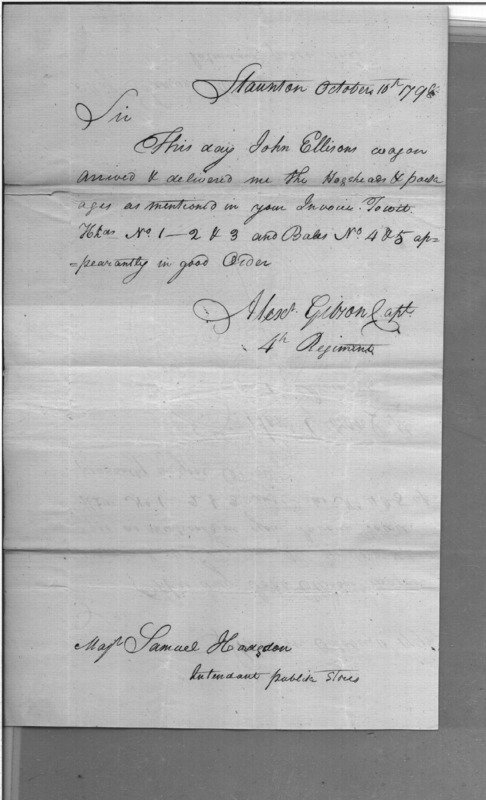 Staunton October 10th 179
Sir
This day John Ellisons wagon
arrived & delivered me the Hogsheads & pack
ages as mentioned in your Invoice. Towit.
Hhds No 1–2 & 3 and Bales No. 4 & 5 ap=
=pearantly in good Order
Alexr. Gibson Capt.
4th Regiment
Majr Samuel Hodgdon
Intendant publick Stores